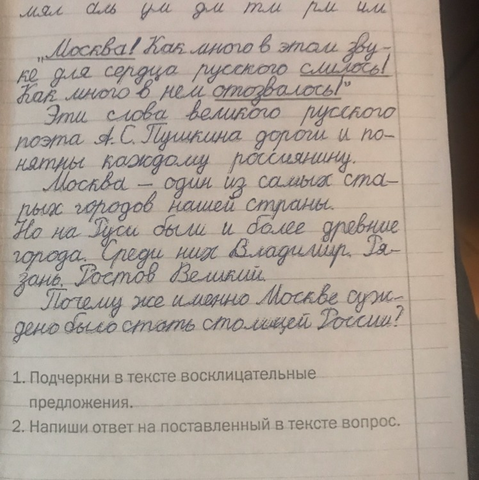 мял аль ум дм тм рм им
„Москва! Как много в этом зву-
ке для сердца русского слилось!
Как много в нем отозвалось!"
Эти слова великого русского
поэта А.С.Пушкина дороги и по-
нятны каждому россиянину.
Москва – один из самых ста-
рых городов нашей страны.
Но на Руси были и более древние
города. Среди них Владимир. Ря-
зань. Ростов Великий.
Почему же именно Москве суж-
дено было стать столицей России?
1. Подчеркни в тексте восклицательные
предложения.
2. Напиши ответ на поставленный в тексте вопрос.